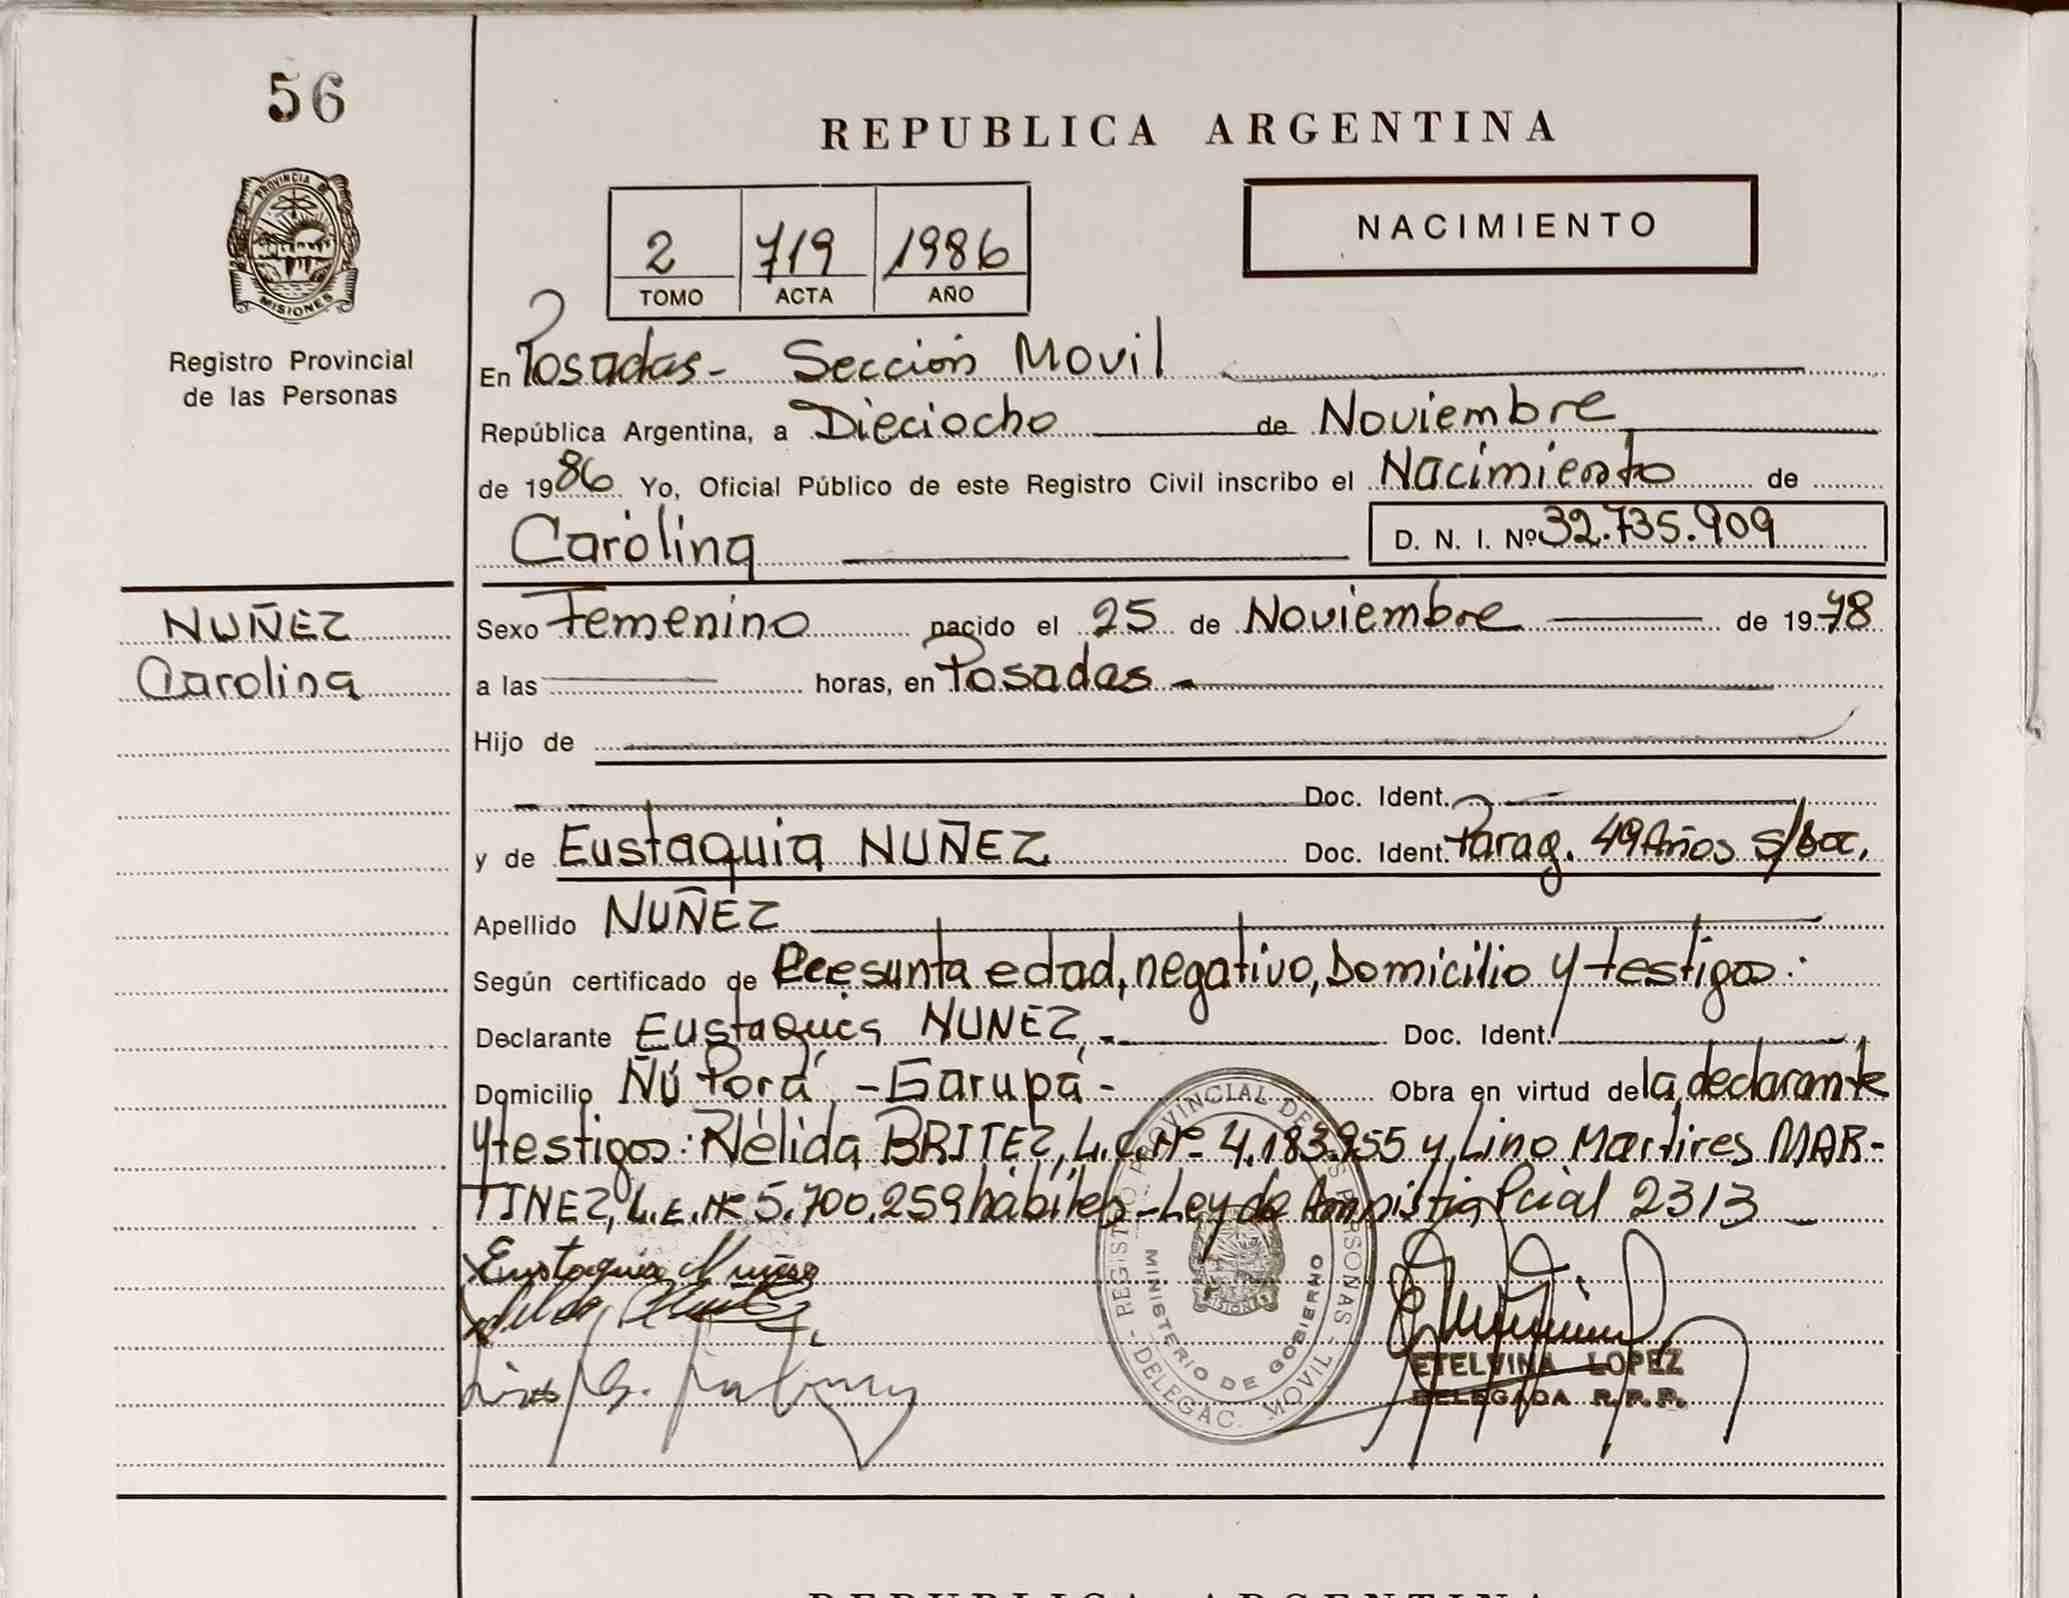 56
REPUBLICA ARGENTINA
PROVINCIA DE
MISIONES
2 719 1986
TOMO ACTA AÑO
NACIMIENTO
Registro Provincial
de las Personas
En Posadas - Sección Movil
República Argentina, a Dieciocho de Noviembre
de 1986 Yo, Oficial Público de este Registro Civil inscribo el Nacimiento de
Carolina D. N. I. Nº 32.735.909
NUÑEZ
Carolina
Sexo Femenino nacido el 25 de Noviembre de 1978
a las horas, en Posadas
Hijo de
Doc. Ident.
y de Eustaquia NUÑEZ Doc. Ident. Parag. 49 Años s/Doc.
Apellido NUÑEZ
Según certificado de Presunta edad, negativo, Domicilio y testigos:
Declarante Eustaquia NUNEZ.- Doc. Ident.
Domicilio Ñú Porá - Garupá - Obra en virtud de la declarante
y testigos: Nélida BRITEZ, L.C. Nº 4.183.955 y Lino Martires MAR-
TINEZ, L.E. Nº 5.700.259 hábiles - Ley de Amnistia Pcial 2313
Eustaquia Nuñez
REGISTRO PROVINCIAL DE LAS PERSONAS - DELEGAC. MOVIL -
MINISTERIO DE GOBIERNO
MISIONES
ETELVINA LOPEZ
DELEGADA R.P.P.
REPUBLICA ARGENTINA